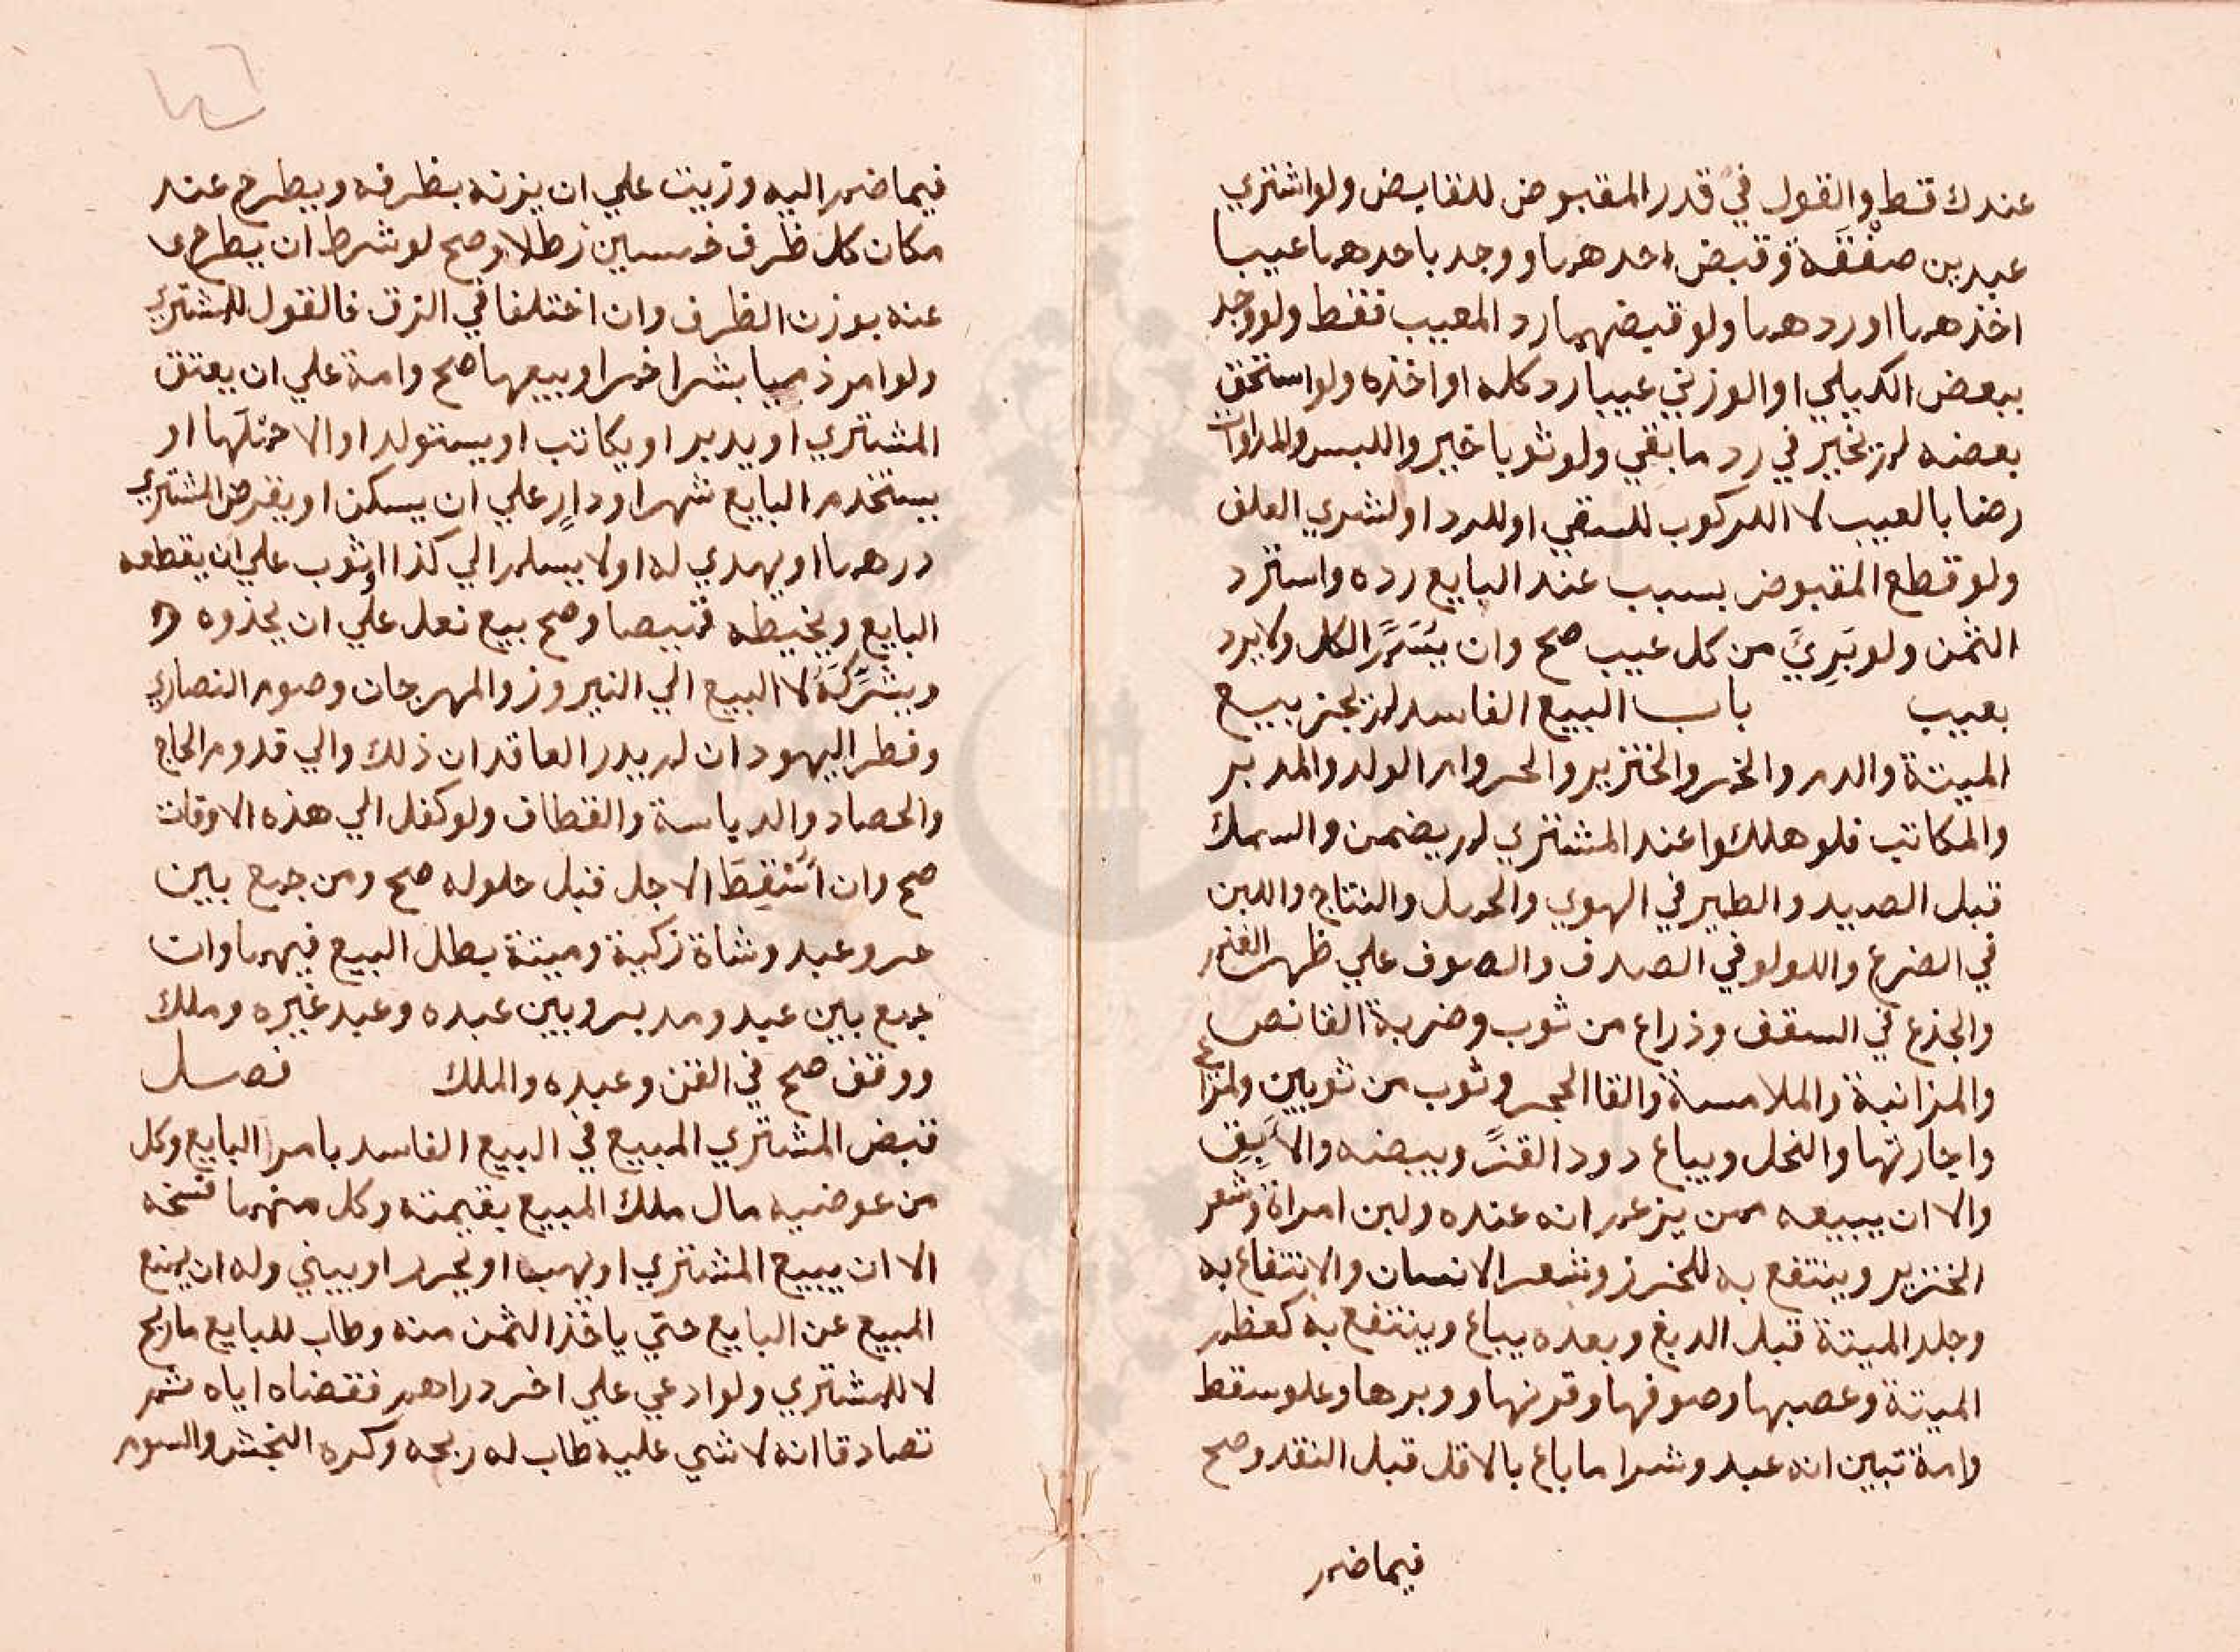 عندك قط والقول في قدر المقبوض للقابض ولو اشتري
عبدين صفقة وقبض احدهما ووجد باحدهما عيبا
اخذهما او ردهما ولو قبضهما رد المعيب فقط ولو وجد
ببعض الكيلي او الوزني عيبا رد كله او اخذه ولو استحق
بعضه لم يخير في رد ما بقي ولو ثوبا خير واللبس والمداوات
رضا بالعيب لا الركوب للسقي او للرد او لشري العلف
ولو قطع المقبوض بسبب عند البايع رده واسترد
الثمن ولو بَرِيَ من كل عيب صح وان الكل ولا يرد
بعيب باب البيع الفاسد لم يجز بيع
الميتة والدم والخمر والخنزير والحر وام الولد والمدبر
والمكاتب فلو هلكوا عند المشتري لم يضمن والسمك
قبل الصيد والطير في الهوي والحمل والنتاج واللبن
في الضرع واللولو في الصدف والصوف علي ظهر الغنم
والجذع في السقف وذراع من ثوب وضربة القانص
والمزابنة والملامسة والقا الحجر وثوب من ثوبين والمراع
واجارتها والنحل ويباع دود القز وبيضه والابق
والا ان يبيعه ممن يزعم انه عنده ولبن امراة وشعر
الخنزير وينتفع به للخرز وشعر الانسان والانتفاع به
وجلد الميتة قبل الدبغ وبعده يباع وينتفع به كعظم
الميتة وعصبها وصوفها وقرنها ووبرها وعلو سقط
وامة تبين انه عبد وشرا ما باع بالاقل قبل النقد وصح
فيما ضم
فيما ضم اليه وزيت علي ان يزنه بظرفه ويطرح عند
مكان كل ظرف خمسين رطلا وصح لو شرط ان يطرح
عنه بوزن الظرف وان اختلفا في الزق فالقول للمشتري
ولو امر ذميا بشرا خمر او بيعها صح وامة علي ان يعتق
المشتري او يدبر او يكاتب او يستولد او الا حملها او
يستخدم البايع شهرا او دار علي ان يسكن او يقرض المشتري
درهما او يهدي له او لا يسلم الي كذا او ثوب علي ان يقطعه
البايع ويخيطه قميصا وصح بيع نعل علي ان يحذوه
ويشركه لا البيع الي النيروز والمهرجان وصوم النصاري
وفطر اليهود ان لم يدر العاقدان ذلك والي قدوم الحاج
والحصاد والدياسة والقطاف ولو كفل الي هذه الاوقات
صح وان الاجل قبل حلوله صح ومن جمع بين
حر وعبد وشاة زكية وميتة بطل البيع فيهما وان
جمع بين عبد ومدبر وبين عبده وعبد غيره وملك
ووقف صح في القن وعبده والملك فصل
قبض المشتري المبيع في البيع الفاسد بامر البايع وكل
من عوضيه مال ملك المبيع بقيمته وكل منهما فسخه
الا ان يبيع المشتري او يهب او يحرر او يبني وله ان يمنع
المبيع عن البايع حتي ياخذ الثمن منه وطاب للبايع ما ربح
لا للمشتري ولو ادعي علي اخر دراهم فقضاه اياه ثم
تصادقا انه لا شي عليه طاب له ربحه وكره النجش والسوم